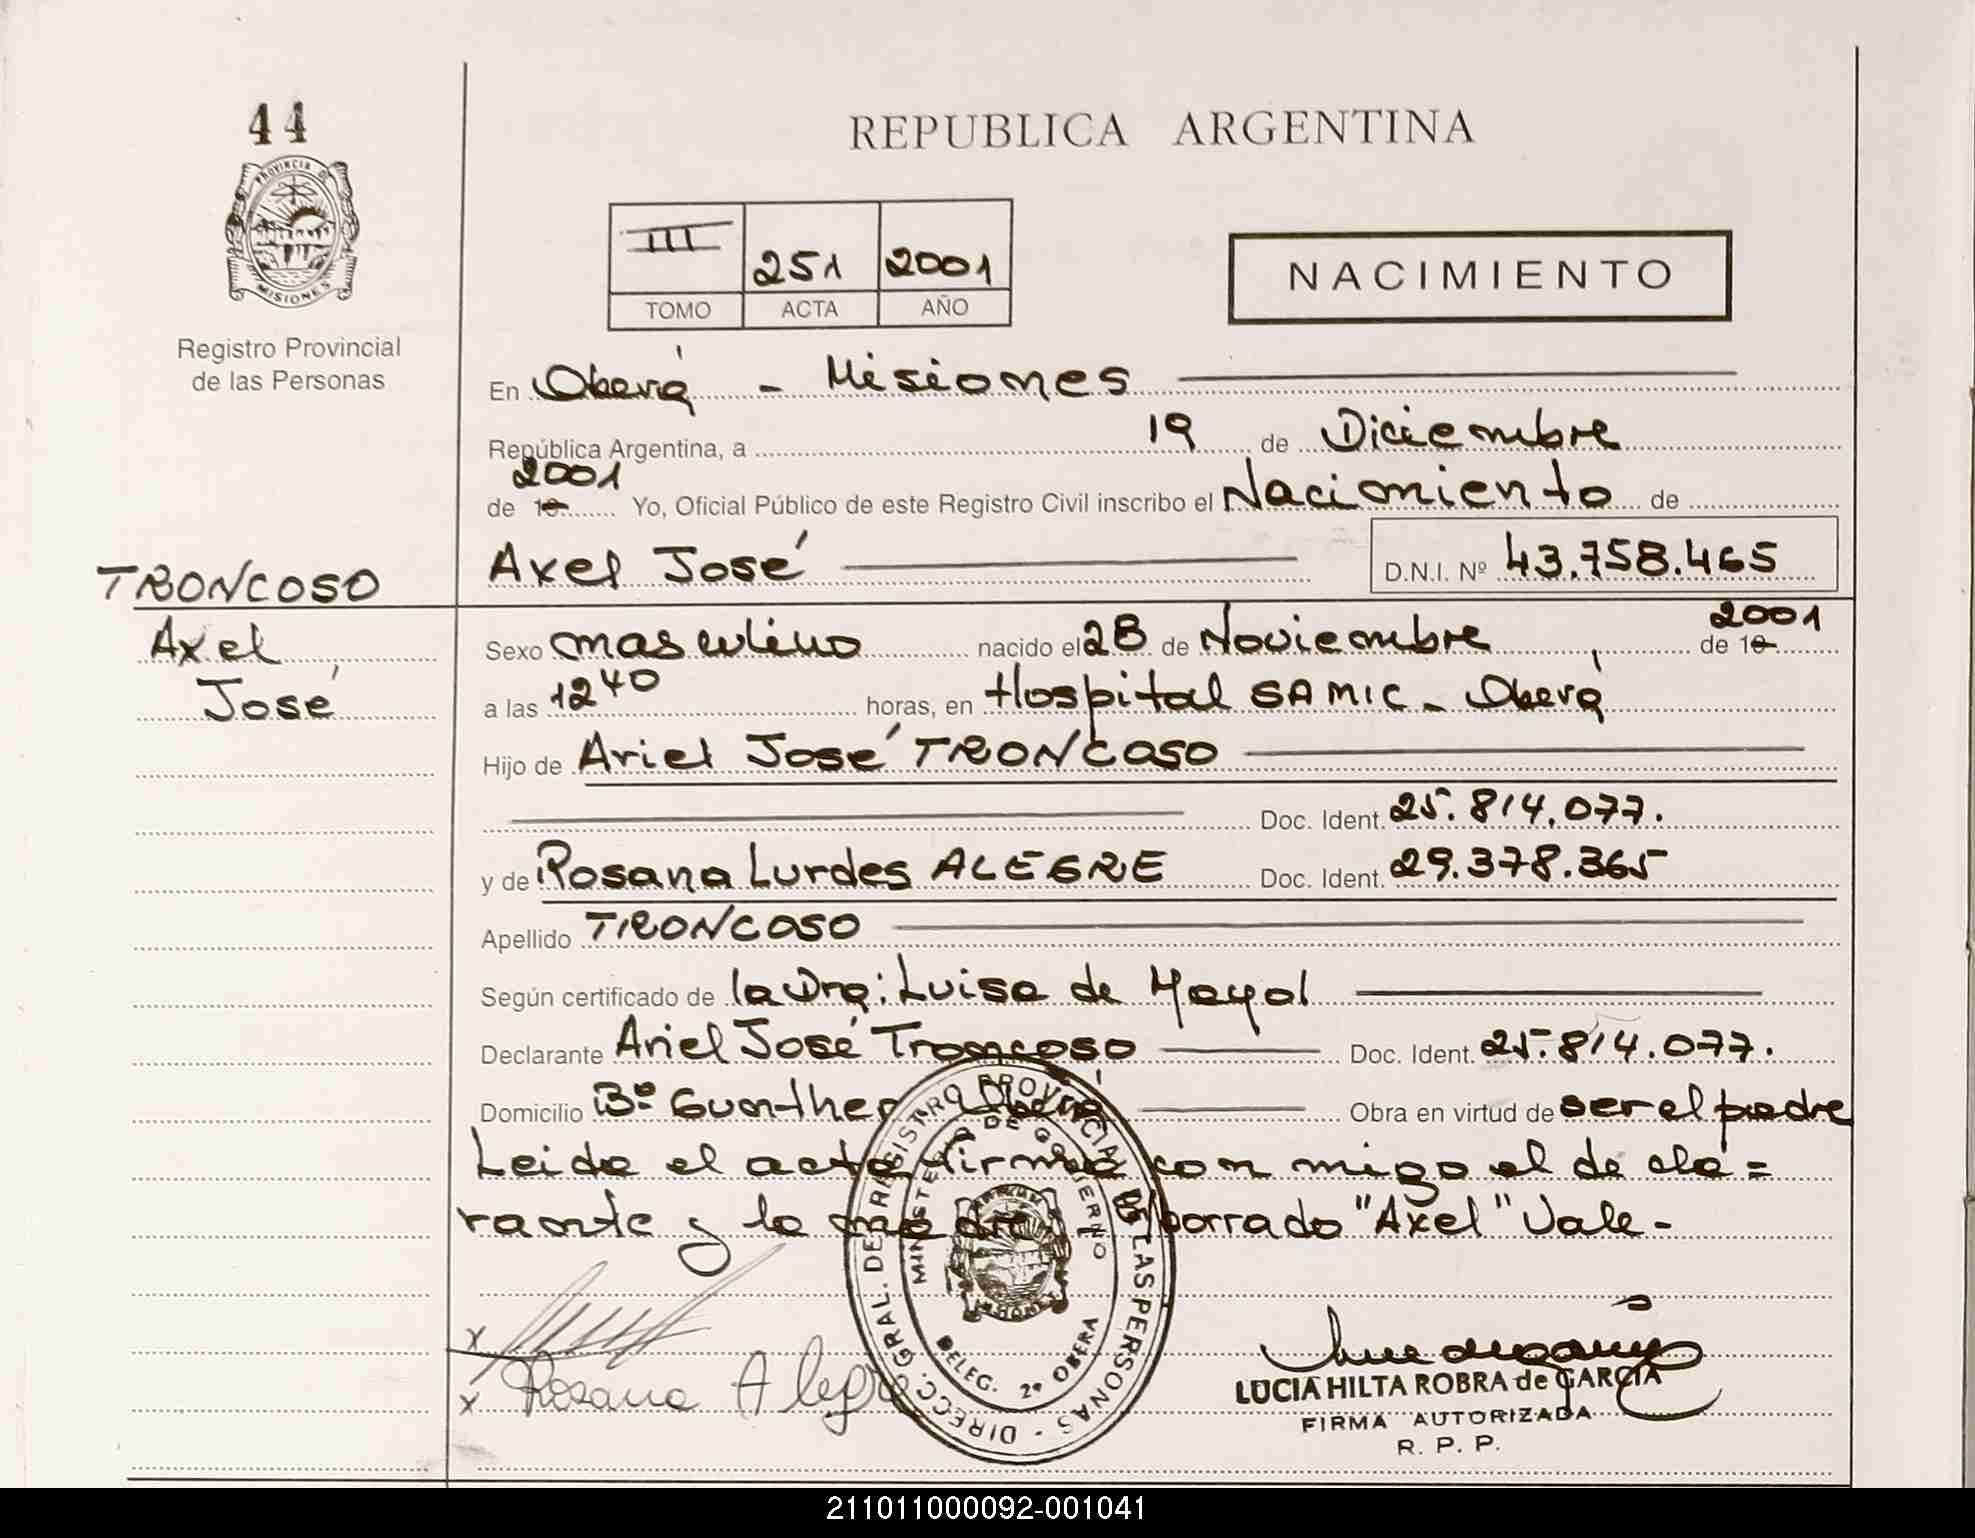 44
REPUBLICA ARGENTINA
PROVINCIA D
MISIONES
III 251 2001
TOMO ACTA AÑO
NACIMIENTO
Registro Provincial
de las Personas
En Oberá - Misiones
República Argentina, a 19 de Diciembre
2001
de 19 Yo, Oficial Público de este Registro Civil inscribo el Nacimiento de
Axel José D.N.I. Nº 43.758.465
TRONCOSO
Axel
José
Sexo masculino nacido el 28 de Noviembre de 19 2001
a las 12 40 horas, en Hospital SAMIC - Oberá
Hijo de Ariel José TRONCOSO
Doc. Ident. 25.814.077.
y de Rosana Lurdes ALEGRE Doc. Ident. 29.378.365
Apellido TRONCOSO
Según certificado de la Dra: Luisa de Mayol
Declarante Ariel José Troncoso Doc. Ident. 25.814.077.
Domicilio Bº Gunther Oberá Obra en virtud de ser el padre
Leida el acta firma con migo el de cla=
rante y la madre borrado "Axel" Vale-
x
x Rosana Alegre
DIRECC. GRAL. DE REGISTRO PROVINCIAL DE LAS PERSONAS
MINISTERIO DE GOBIERNO
DELEG. 2ª OBERA
LUCIA HILTA ROBRA de GARCIA
FIRMA AUTORIZADA
R. P. P.
211011000092-001041